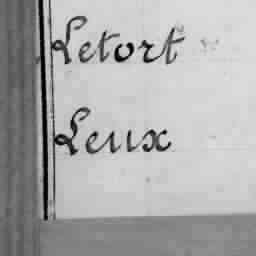 Letort
Leux